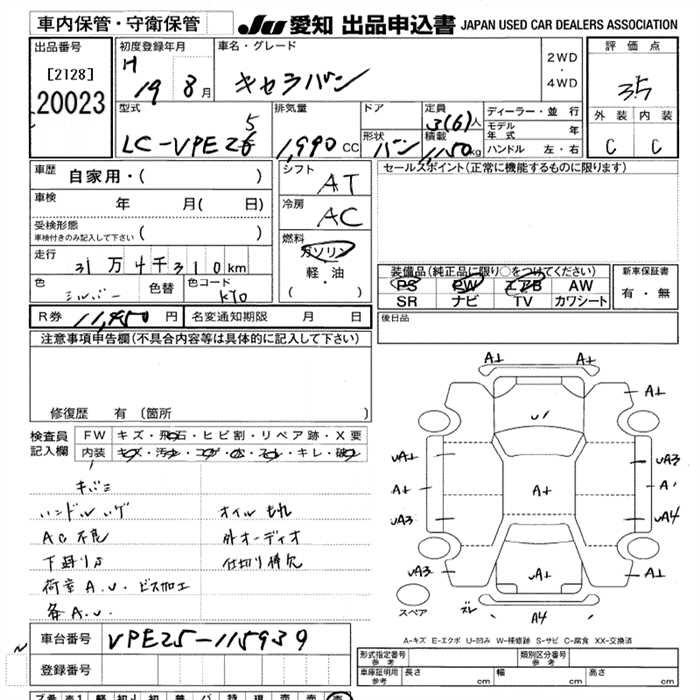 車内保管・守衛保管
JU 愛知 出品申込書 JAPAN USED CAR DEALERS ASSOCIATION
出品番号
[2128]
20023
初度登録年月
H 19 8月
車名・グレード
キャラバン
2WD
・
4WD
評価点
3.5
外装 内装
C C
型式
LC-VPE25
排気量
1,990 CC
ドア
形状
バン
定員
3(6)人
積載
1,150kg
ディーラー・並行
モデル年式 年
ハンドル 左・右
車歴
自家用・( )
車検
年 月( 日)
受検形態
車検付きのみ記入して下さい ( )
走行
31万4千310km
色
シルバー
色替
色コード
KY0
シフト
AT
冷房
AC
燃料
ガソリン
軽・油
( ・ )
セールスポイント(正常に機能するものに限ります)
装備品(純正品に限り○をつけてください)
PS PW エアB AW
SR ナビ TV カワシート
新車保証書
有・無
R券 11,450円
名変通知期限 月 日
後日品
注意事項申告欄(不具合内容等は具体的に記入して下さい)
修復歴 有 (箇所 )
検査員記入欄
FW キズ・飛石・ヒビ割・リペア跡・X要
内装 キズ・汚れ・コゲ・穴・スレ・キレ・破れ
キバミ
ハンドルハゲ オイルもれ
AC不良 外オーディオ
下廻りS 仕切り棒欠
荷室A.U.ビス加工
各A.U.
A1 A1
A1
U1
UA1 UA3
A1 A1 A1
UA3 UA4
UA3 UA1
スペア ズレ A4
A-キズ E-エクボ U-凹み W-補修跡 S-サビ C-腐食 XX-交換済
車台番号 VPE25-115939
登録番号
形式指定番号 参考
類別区分番号 参考
車庫証明用 参考 長さ cm 幅 cm 高さ cm